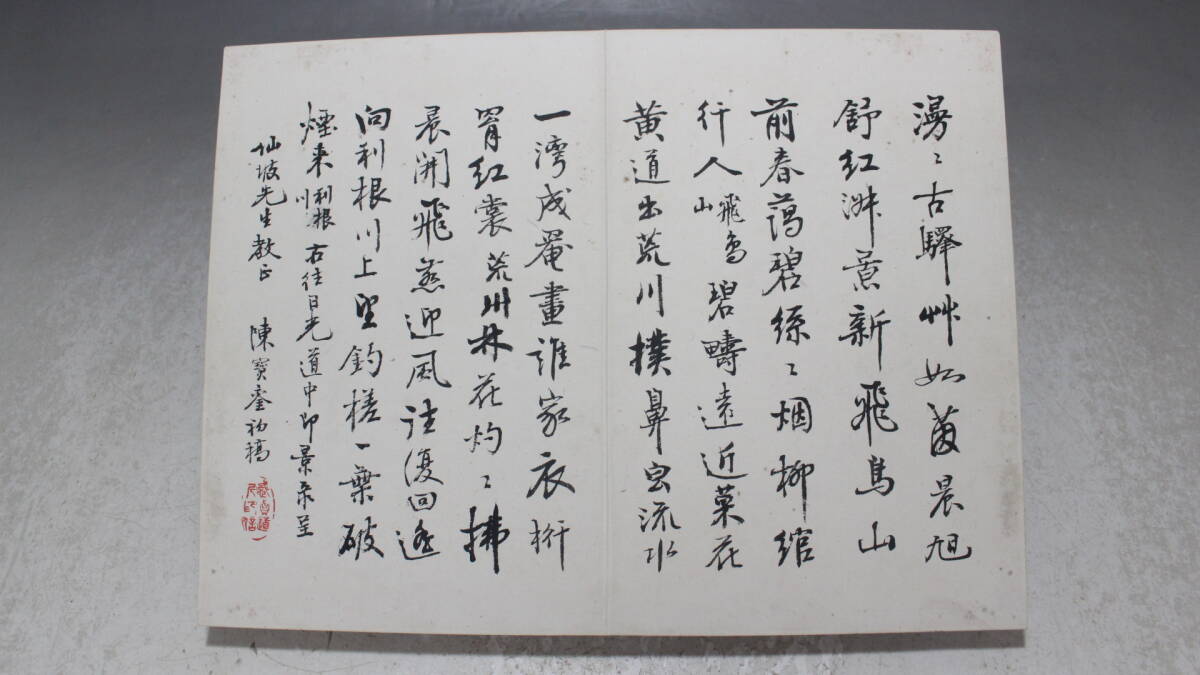 漫〻古驛艸如茵晨旭
舒紅淑景新飛鳥山
前春蕩碧絲〻烟柳綰
行人飛鳥山碧疇遠近菜花
黄道出荒川撲鼻香流水
一湾成罨畫誰家衣桁
罥紅裳荒川林花灼〻拂
晨開飛燕迎風往復回遙
向利根川上望釣槎一葉破
煙来利根川右往日光道中即景录呈
仙坡先生教正 陳寶奎初稿